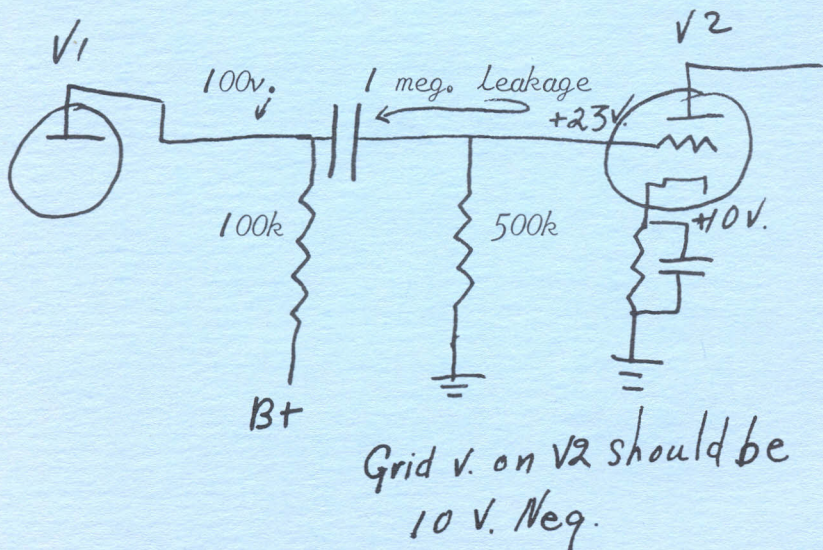 V1
V2
100v.
1 meg. Leakage
+23v.
100k
500k
+10v.
B+
Grid v. on V2 should be
10 v. Neg.